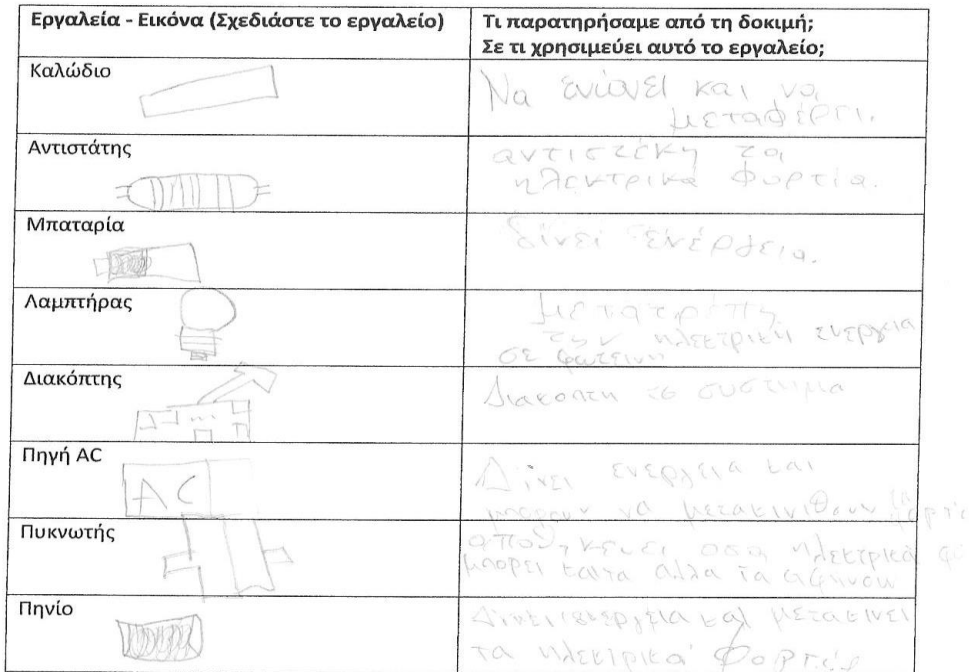 Εργαλεία - Εικόνα (Σχεδιάστε το εργαλείο)
Τι παρατηρήσαμε από τη δοκιμή;
Σε τι χρησιμεύει αυτό το εργαλείο;
Καλώδιο
Να ενώνει και να
μεταφέρει.
Αντιστάτης
αντιστέκη τα
ηλεκτρικά φορτία.
Μπαταρία
δίνει ενέργεια.
Λαμπτήρας
μετατρέπη
την ηλεκτρική ενεργεια
σε φωτεινη
Διακόπτης
Διακοπτη το συστημα
Πηγή AC
AC
Δινει ενεργεια και
μπορουν να μετακινιθουν τα
Πυκνωτής
αποθηκευει οσα ηλεκτρικα
μπορει και τα αλλα τα αφηνουν
Πηνίο
Δινει ενεργεια και μετακινει
τα ηλεκτρικα